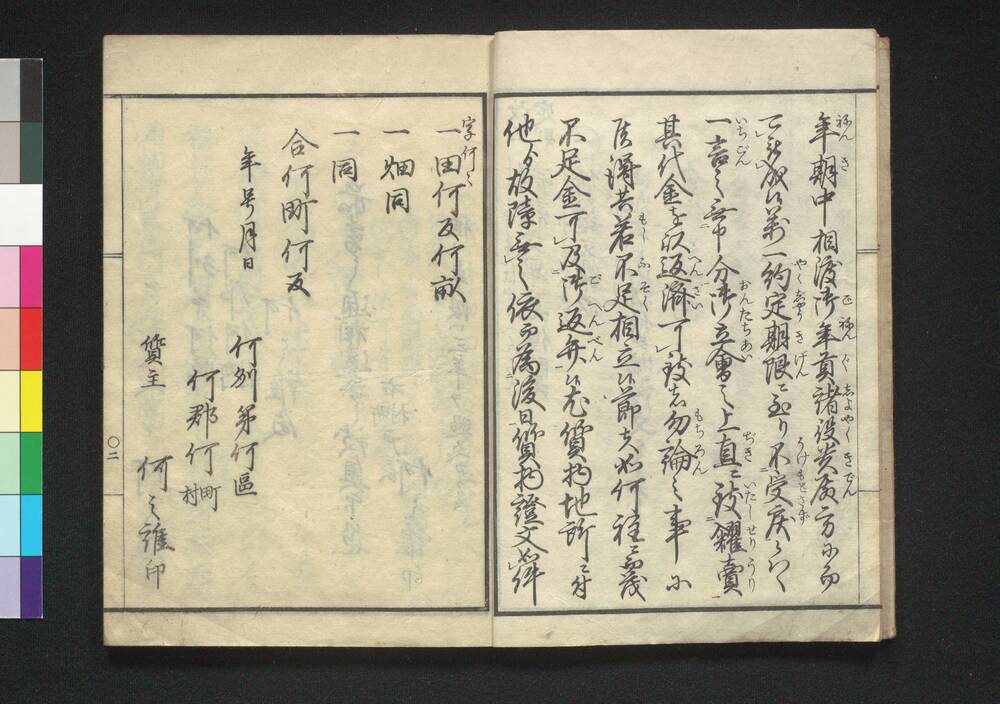 年期中相渡御年貢諸役貴殿方ニ而
可被成候万一約定期限ニ至リ不受戻候ハヽ
一言之無申分御立會之上直ニ致糶賣
其代金を以返済可致者勿論之事ニ
候得共若不足相立候節者如何程ニ而茂
不足金可及御返弁候尤質物地所ニ付
他より故障無之依而為後日質物證文如件
字何々
一田何反何畝
一畑同
一同
合何町何反
年号月日
何州第何區
何郡何町村
質主 何之誰印
〇二